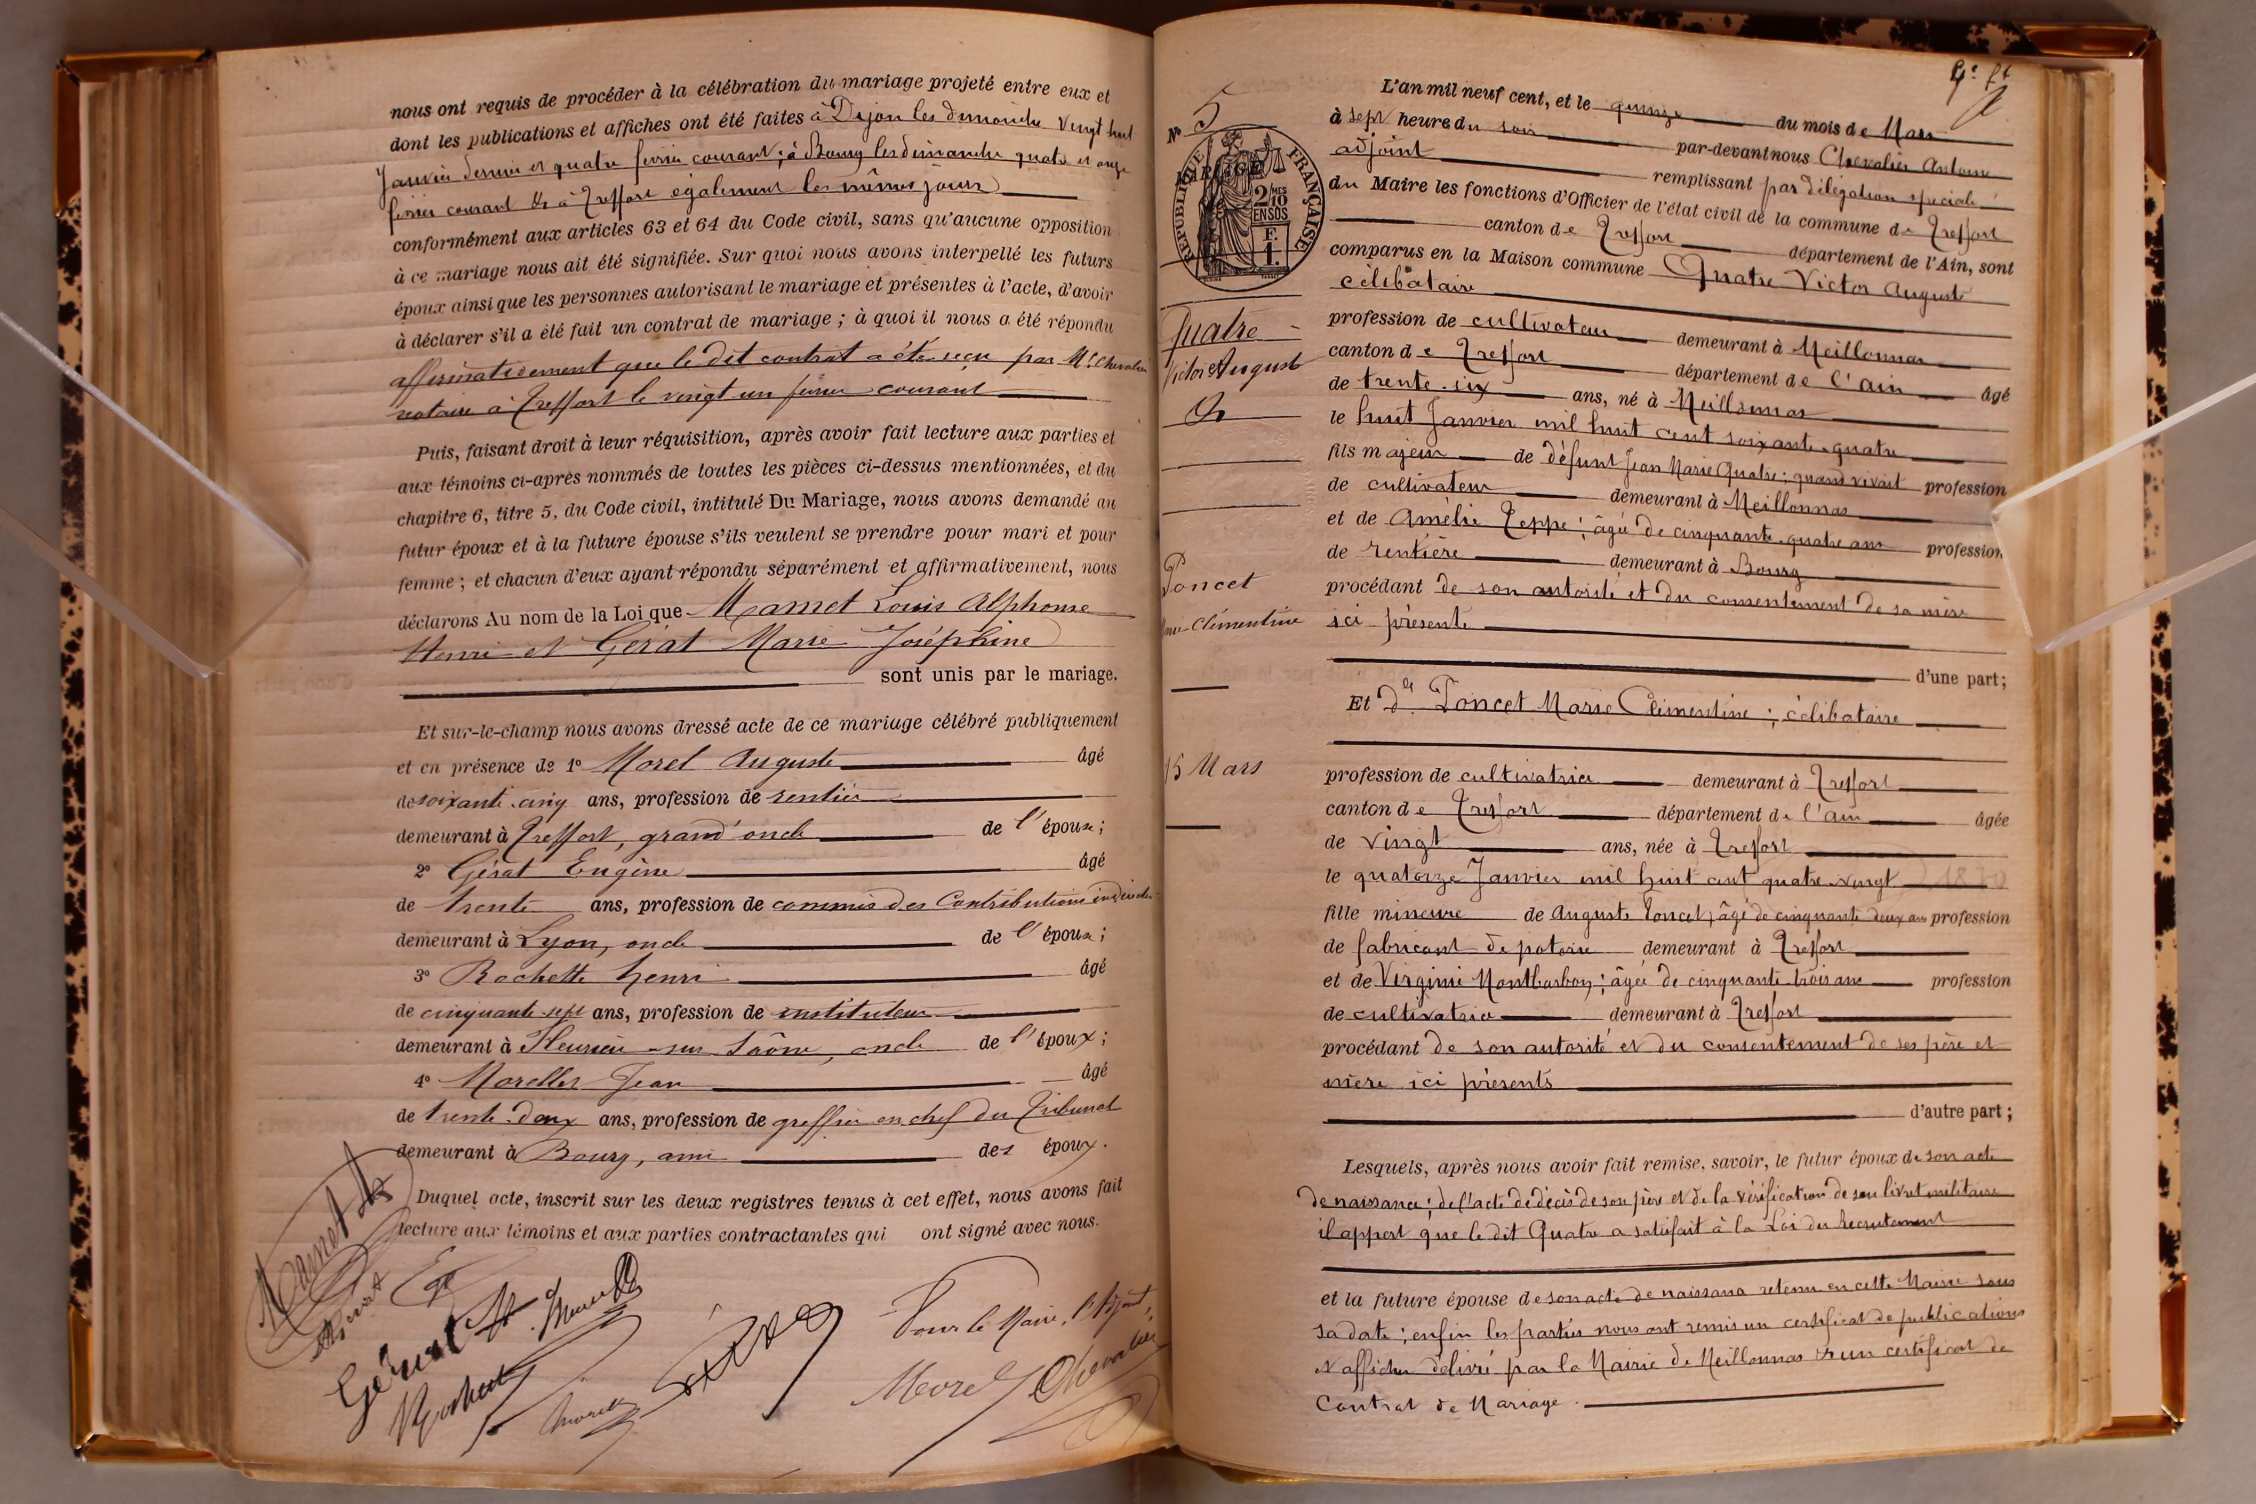 nous ont requis de procéder à la célébration du mariage projeté entre eux et
dont les publications et affiches ont été faites à Dijon les dimanche vingt huit
Janvier dernier et quatre février courant ; à Bourg les dimanche quatre et onze
février courant & à Treffort également les mêmes jours
conformément aux articles 63 et 64 du Code civil, sans qu'aucune opposition
à ce mariage nous ait été signifiée. Sur quoi nous avons interpellé les futurs
époux ainsi que les personnes autorisant le mariage et présentes à l'acte, d'avoir
à déclarer s'il a été fait un contrat de mariage ; à quoi il nous a été répondu
affirmativement que le dit contrat a été reçu par Me Chevalier
notaire à Treffort le vingt un février courant
Puis, faisant droit à leur réquisition, après avoir fait lecture aux parties et
aux témoins ci-après nommés de toutes les pièces ci-dessus mentionnées, et du
chapitre 6, titre 5, du Code civil, intitulé Du Mariage, nous avons demandé au
futur époux et à la future épouse s'ils veulent se prendre pour mari et pour
femme ; et chacun d'eux ayant répondu séparément et affirmativement, nous
déclarons Au nom de la Loi que Mamet Louis Alphonse
Henri et Gérat Marie Joséphine
sont unis par le mariage.
Et sur-le-champ nous avons dressé acte de ce mariage célébré publiquement
et en présence de 1° Morel Auguste âgé
de soixante-cinq ans, profession de rentier
demeurant à Treffort, grand'oncle de l'épouse ;
2° Gérat Eugène âgé
de trente ans, profession de commis des Contributions indirectes
demeurant à Lyon, oncle de l'épouse ;
3° Rochette henri âgé
de cinquante-sept ans, profession de instituteur
demeurant à Fleurieu-sur-Saône, oncle de l'époux ;
4° Morellet Jean âgé
de trente-deux ans, profession de greffier en chef du Tribunal
demeurant à Bourg, ami des époux.
Duquel acte, inscrit sur les deux registres tenus à cet effet, nous avons fait
lecture aux témoins et aux parties contractantes qui ont signé avec nous.
Mamet
Gérat
Pour le Maire, l'Adjoint,
Morel
Chevalier
N° 5
RÉPUBLIQUE FRANÇAISE
2/10 MES
EN SUS
1 F.
Quatre
Victor Auguste
&
Poncet
Marie-Clémentine
15 Mars
L'an mil neuf cent, et le quinze du mois de Mars
à sept heure du soir par-devant nous Chevalier Antoine
adjoint remplissant par délégation spéciale
du Maire les fonctions d'Officier de l'état civil de la commune de Treffort
canton de Treffort département de l'Ain, sont
comparus en la Maison commune Quatre Victor Auguste
célibataire
profession de cultivateur demeurant à Meillonnas
canton de Treffort département de l'ain âgé
de trente-six ans, né à Meillonnas
le huit Janvier mil huit cent soixante-quatre
fils majeur de défunt Jean Marie Quatre ; quand vivait profession
de cultivateur demeurant à Meillonnas
et de Amélie Teppe ; âgée de cinquante-quatre ans profession
de rentière demeurant à Bourg
procédant de son autorité et du consentement de sa mère
ici présente
d'une part ;
Et dlle Poncet Marie Clémentine ; célibataire
profession de cultivatrice demeurant à Treffort
canton de Treffort département de l'ain âgée
de vingt ans, née à Treffort
le quatorze Janvier mil huit cent quatre-vingt
fille mineure de Auguste Poncet, âgé de cinquante deux ans profession
de fabricant de poterie demeurant à Treffort
et de Virginie Montbarbon ; âgée de cinquante-trois ans profession
de cultivatrice demeurant à Treffort
procédant de son autorité et du consentement de ses père et
mère ici présents
d'autre part ;
Lesquels, après nous avoir fait remise, savoir, le futur époux de son acte
de naissance ; de l'acte de décès de son père et de la vérification de son livret militaire
il appert que le dit Quatre a satisfait à la Loi du recrutement
et la future épouse de son acte de naissance retenu en cette Mairie sous
sa date ; enfin les parties nous ont remis un certificat de publications
& affiches délivré par la Mairie de Meillonnas & un certificat de
Contrat de Mariage.